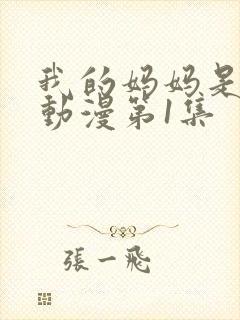 我的妈妈是
動漫第1集
張一飛